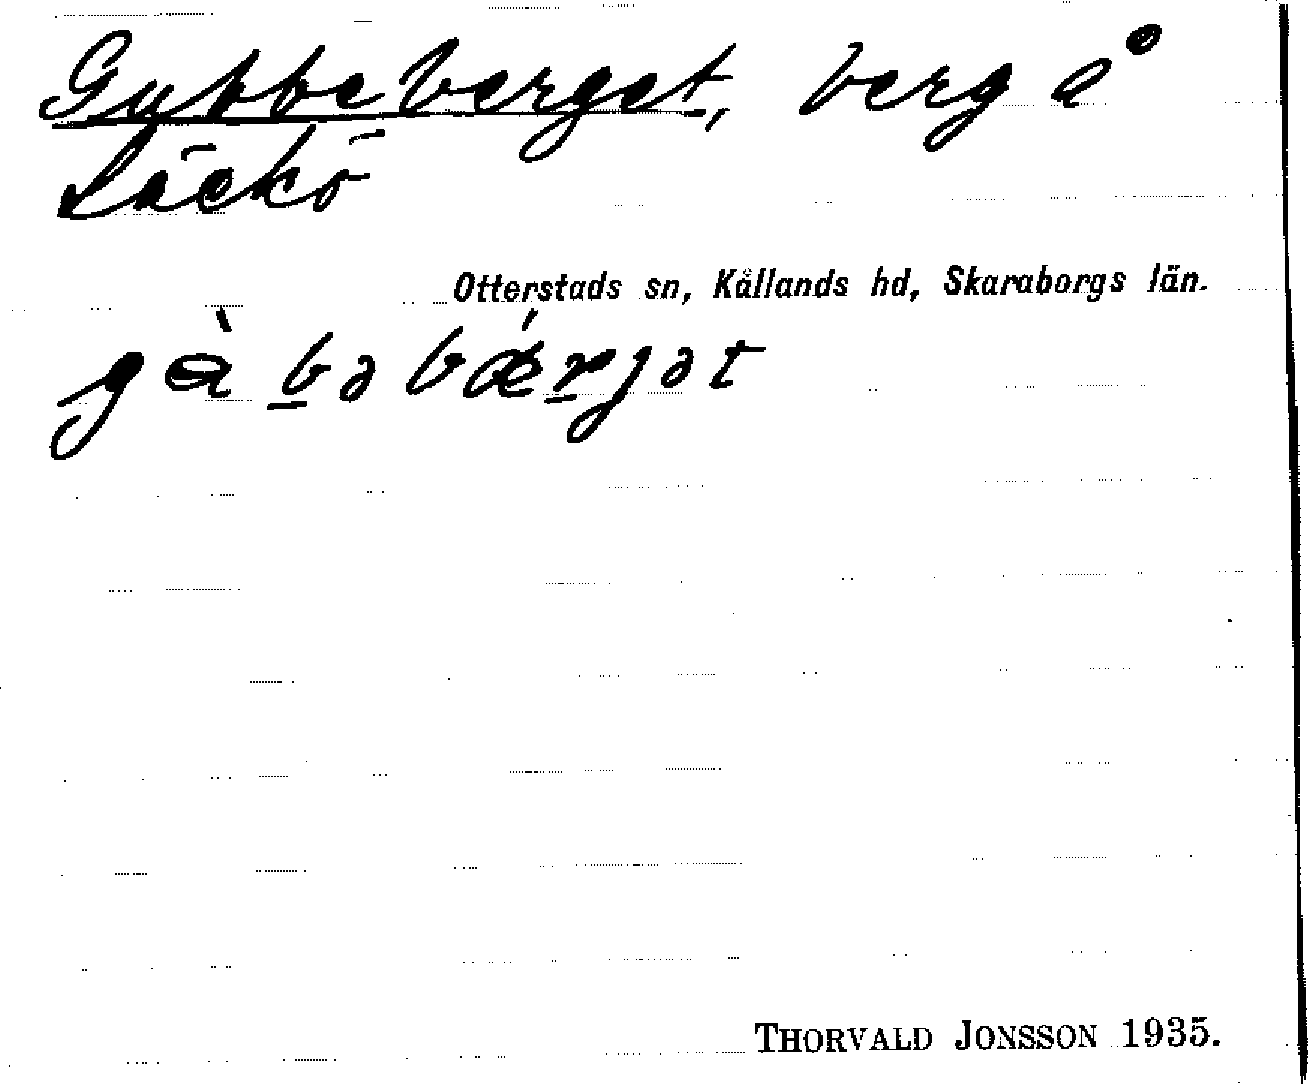 Gubbeberget, berg å
Läckö
Otterstads sn, Kållands hd, Skaraborgs län.
gɵ̀b̲əbǽr̲jət
THORVALD JONSSON 1935.